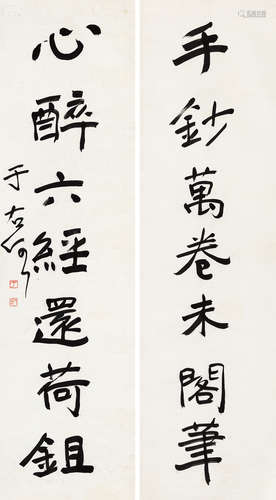 手鈔萬卷未閣筆
心醉六經還荷鉏
于右任